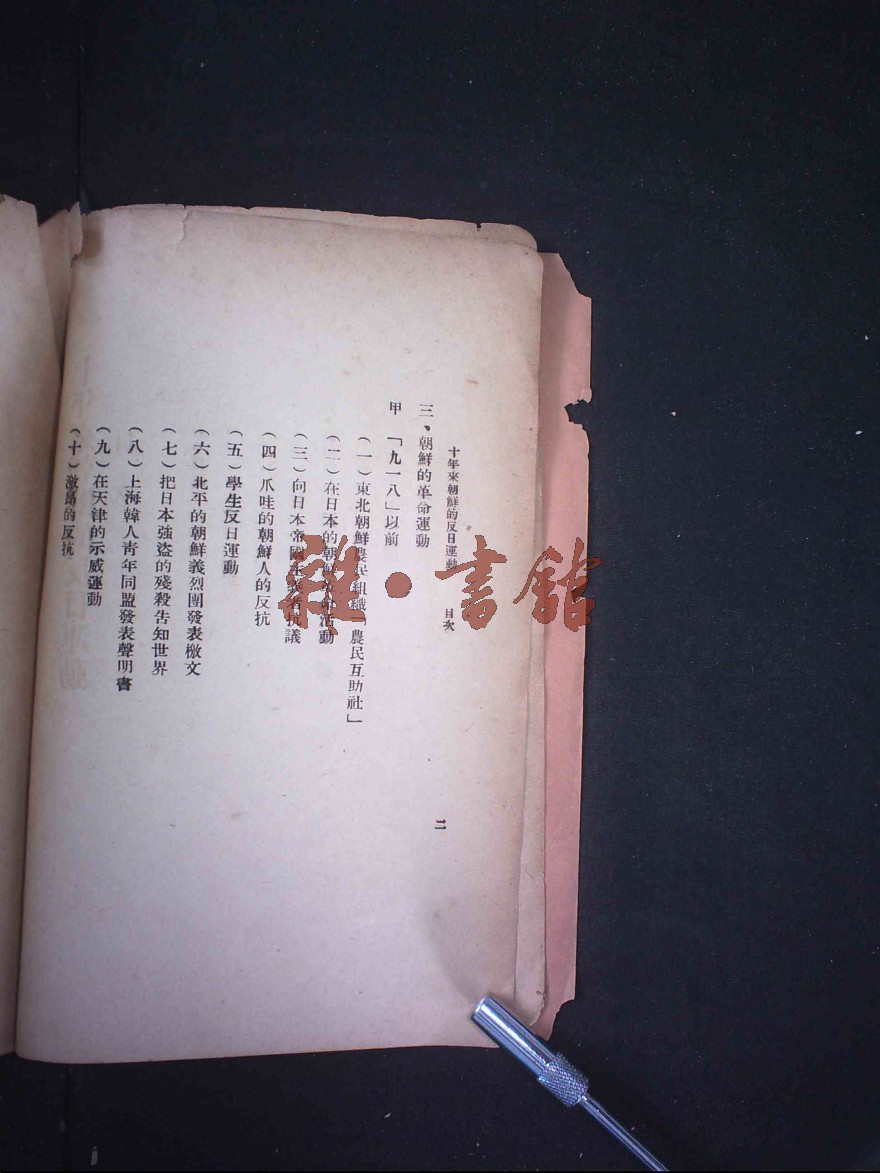 十年來朝鮮的反日運動 目次
二
三、朝鮮的革命運動
甲 「九一八」以前
(一)東北朝鮮農民組織「農民互助社」
(二)在日本的朝鮮革命活動
(三)向日本帝國主義者抗議
(四)爪哇的朝鮮人的反抗
(五)學生反日運動
(六)北平的朝鮮義烈團發表檄文
(七)把日本強盜的殘殺告知世界
(八)上海韓人青年同盟發表聲明書
(九)在天津的示威運動
(十)激昂的反抗
雜·書館